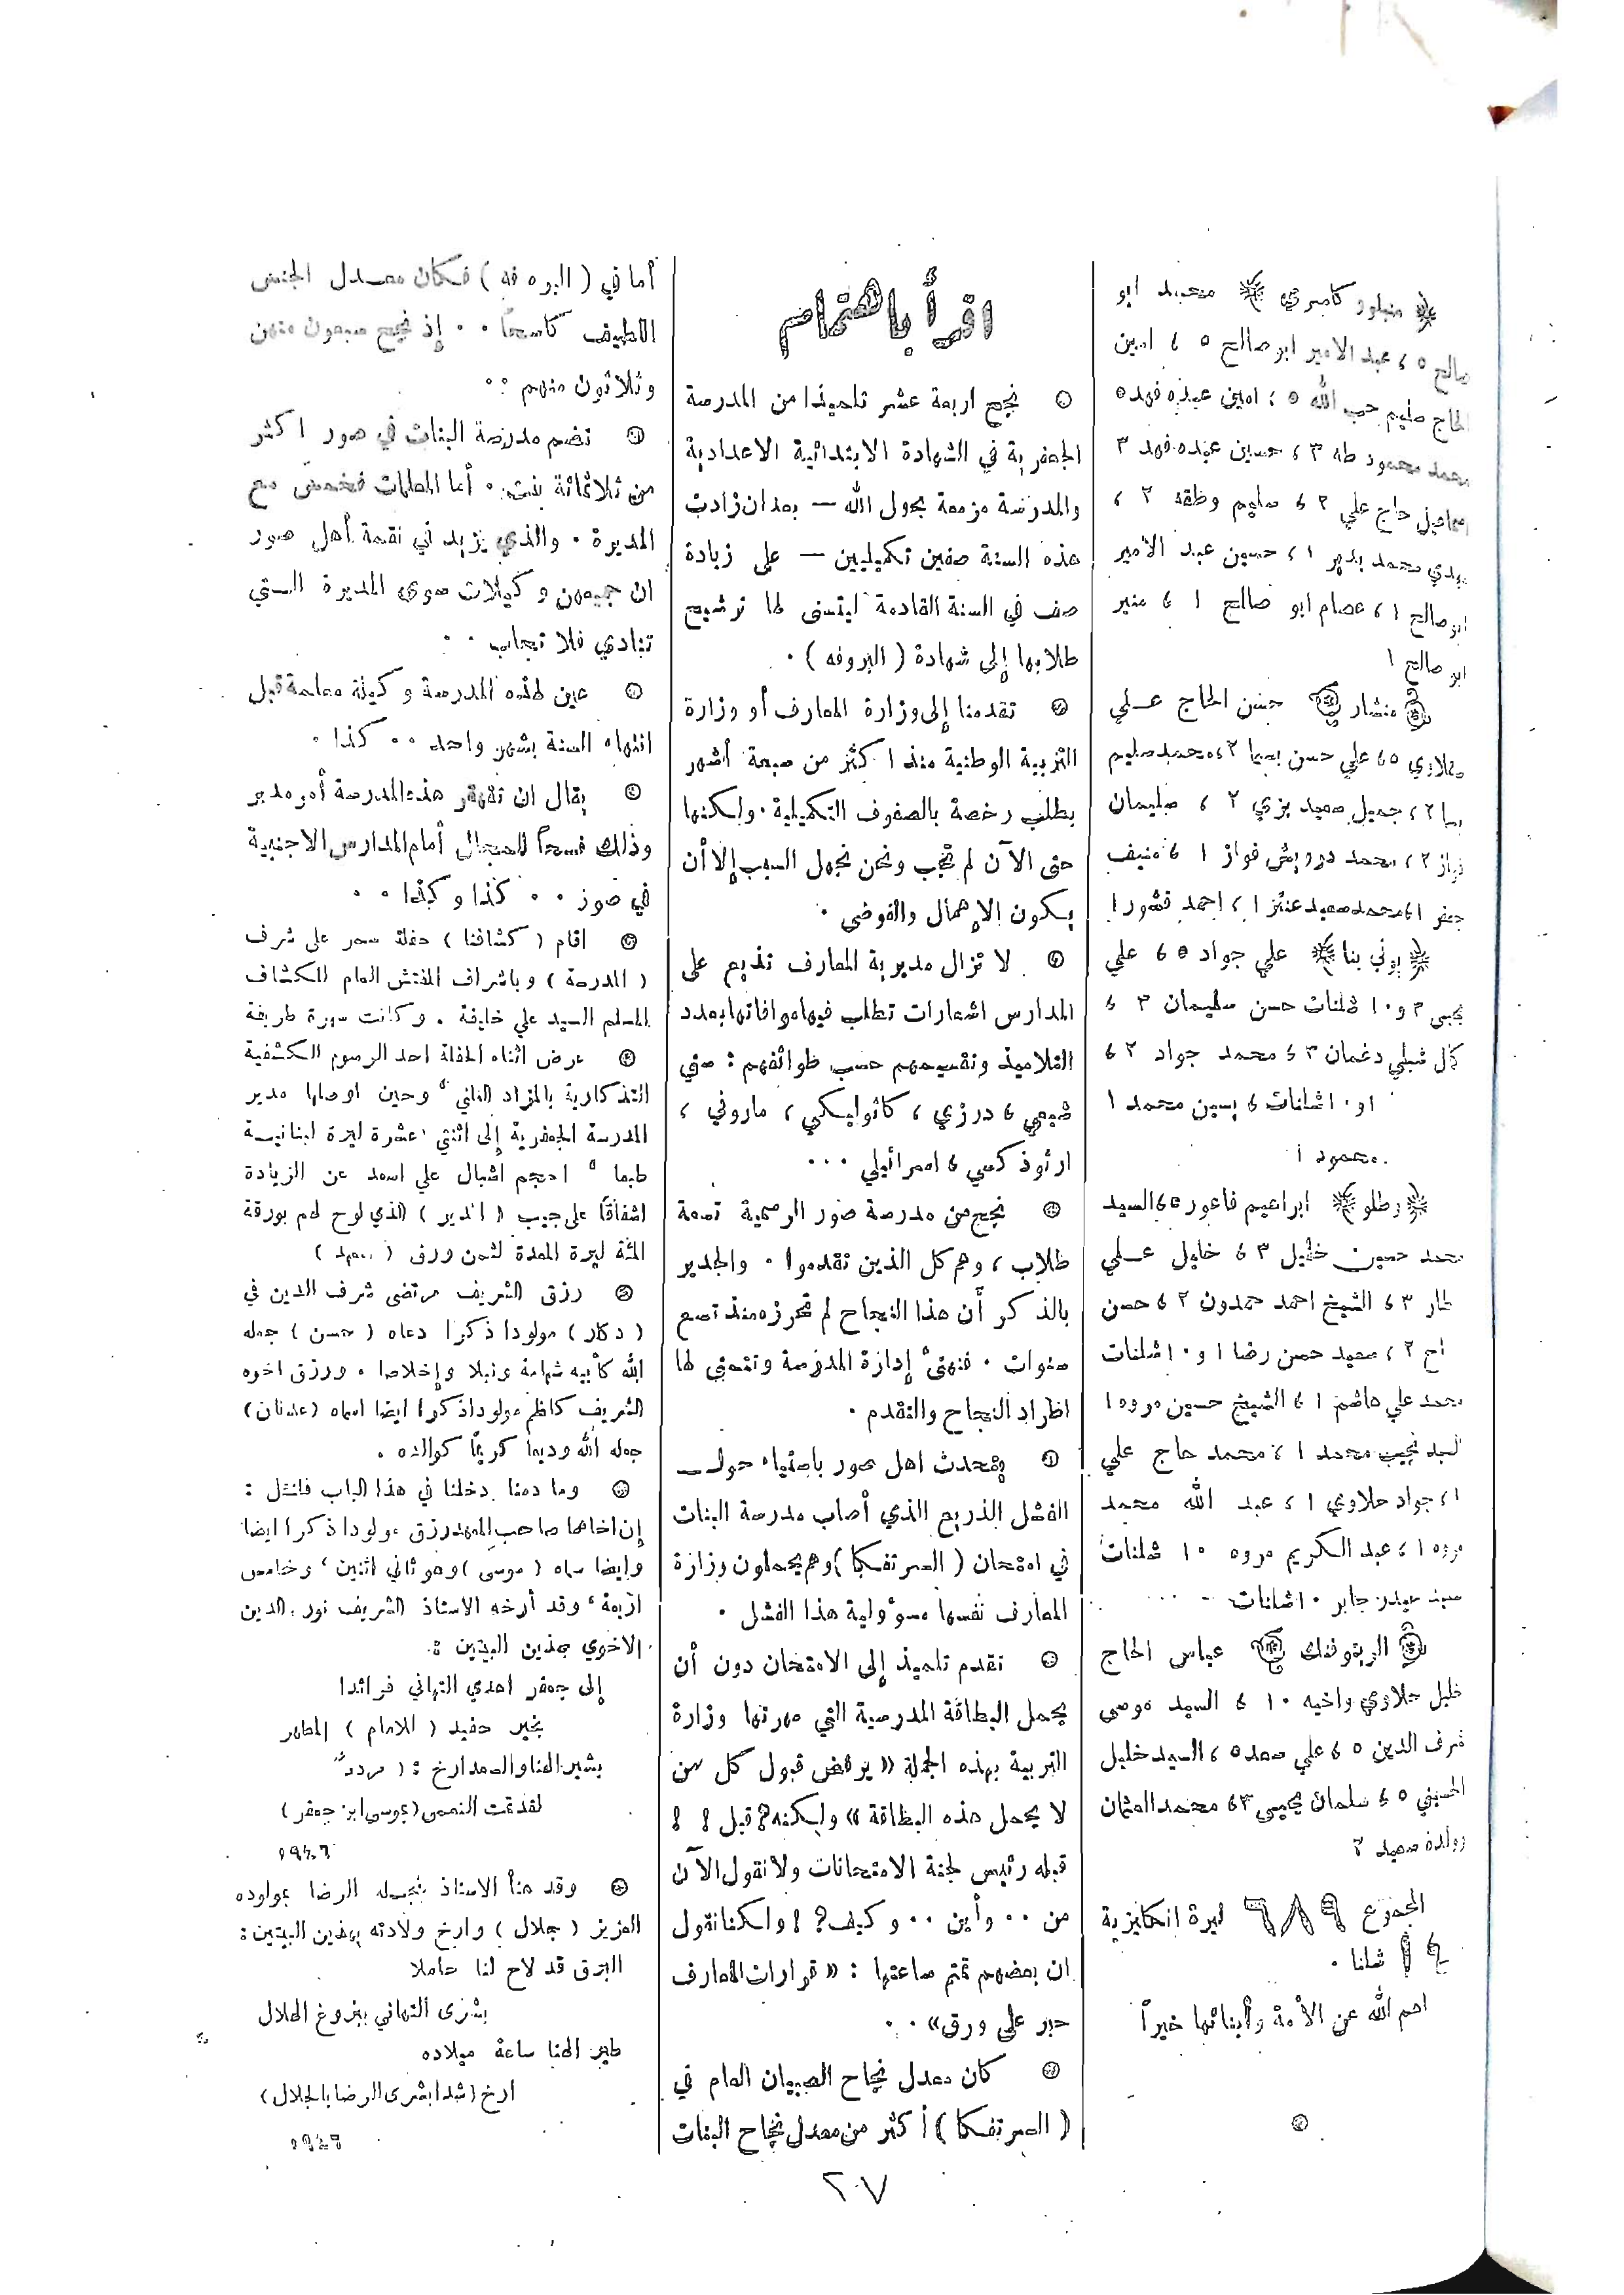 منبلور كامبري محمد ابو
صالح ٥ ، عبد الامير ابو صالح ٥ ، امين
الحاج سليم حب الله ٥ ، امين عبده فهد ٥
محمد محمود طه ٣ ، حسين عبده فهد ٣
اسماعيل حاج علي ٢ ، سليم وظفه ٢ ،
محمد بدير ١ ، حسين عبد الامير
ابو صالح ١ ، عصام ابو صالح ١ ، منير
ابو صالح ١
منشار حسن الحاج عـلي
حلاوي ٥ ، علي حسن بصيا ٢ ، محمد سليم
٢ ، جميل سعيد بزي ٢ ، سليمان
فواز ٢ ، محمد درويش فواز ١ ، منيف
جعفر ١ ، محمد سعيد عنتر ١ ، احمد قشور ١
بوني بنا علي جواد ٥ ، علي
يحيى ٣ و ١٠ شلنات حسن سليمان ٣ ،
كل شبلي دغمان ٣ ، محمد جواد ٢ ،
او ١٠ شلنات ، يسين محمد ١
محمود ١
وطلو ابراهيم فاعور ٥ ، السيد
محمد حسين خليل ٣ ، خليل عـلي
٣ ، الشيخ احمد حمدون ٢ ، حسن
٢ ، سعيد حسن رضا ١ و ١٠ شلنات
محمد علي هاشم ١ ، الشيخ حسين مروه ١
السيد نجيب محمد ١ ، محمد حاج علي
١ ، جواد حلاوي ١ ، عبد الله محمد
مروه ١ ، عبد الكريم مروه ١٠ شلنات
حيدر جابر ١٠ شلنات
الريتوفنك عباس الحاج
خليل حلاوي واخيه ١٠ ، السيد موسى
شرف الدين ٥ ، علي سعد ٥ ، السيد خليل
الحسيني ٥ ، سلمان يحيى ٣ ، محمد العثمان
وولده سعيد ٢
المجموع ٦٨٩ ليرة انكليزية
شلنا .
الله عن الأمة وأبنائها خيراً
اقرأ باهتمام
نجح اربعة عشر تلميذا من المدرسة
الجعفرية في الشهادة الابتدائية الاعدادية
والمدرسة مزمعة بحول الله — بعد ان زادت
هذه السنة صفين تكميليين — على زيادة
صف في السنة القادمة ليتسنى لها ترشيح
طلابها إلى شهادة ( البروفه ) .
تقدمنا إلى وزارة المعارف أو وزارة
التربية الوطنية منذ اكثر من سبعة أشهر
بطلب رخصة بالصفوف التكميلية . ولكنها
حتى الآن لم تجب ونحن نجهل السبب إلا أن
يكون الإهمال والفوضى .
لا تزال مديرية المعارف تذيع على
المدارس اشعارات تطلب فيها موافاتها بعدد
التلاميذ وتقسيمهم حسب طوائفهم : سني
شيعي ، درزي ، كاثوليكي ، ماروني ،
ارثوذكسي ، اسرائيلي ...
نجح من مدرسة صور الرسمية تسعة
طلاب ، وهم كل الذين تقدموا . والجدير
بالذكر أن هذا النجاح لم تحرزه منذ تسع
سنوات . فنهنئ إدارة المدرسة ونتمنى لها
اطراد النجاح والتقدم .
يتحدث اهل صور باستياء حول
الفشل الذريع الذي أصاب مدرسة البنات
في امتحان ( السرتفكا ) وهم يحملون وزارة
المعارف نفسها مسؤولية هذا الفشل .
تقدم تلميذ إلى الامتحان دون أن
يحمل البطاقة المدرسية التي مهرتها وزارة
التربية بهذه الجملة « يرفض قبول كل من
لا يحمل هذه البطاقة » ولكنه ? قبل ! !
قبله رئيس لجنة الامتحانات ولا نقول الآن
من .. وأين .. وكيف ? ! ولكننا نقول
ان بعضهم تمتم ساعتها : « قرارات المعارف
حبر على ورق » ..
كان معدل نجاح الصبيان العام في
( السرتفكا ) أكثر من معدل نجاح البنات
أما في ( البروفه ) فكان معـدل الجنس
اللطيف كاسحاً .. إذ نجح سبعون منهن
وثلاثون منهم :.
تضم مدرسة البنات في صور اكثر
من ثلاثمائة بنت . أما المعلمات فخمس مع
المديرة . والذي يزيد في نقمة أهل صور
ان جميعهن وكيلات سوى المديرة الـتي
تنادي فلا تجاب ..
عين لهذه المدرسة وكيلة معلمة قبل
انتهاء السنة بشهر واحد .. كذا .
يقال ان تقهقر هذه المدرسة أمر مدبر
وذلك فسحاً للمجال أمام المدارس الاجنبية
في صور .. كذا وكذا ..
اقام ( كشافنا ) حفلة سمر على شرف
( المدرسة ) وباشراف المفتش العام للكشاف
المسلم السيد علي خليفة . وكانت سهرة طريفة
عرض اثناء الحفلة احد الرسوم الكشفية
التذكارية بالمزاد العلني ، وحين اوصلها مدير
المدرسة الجعفرية إلى اثنتي عشرة ليرة لبنانيـة
طبعا ، احجم اشبال علي اسعد عن الزيادة
اشفاقا على جيب ( المدير ) الذي لوح لهم بورقة
المئة ليرة المعدة لثمن ورق ( المعهد )
رزق الشريف مرتضى شرف الدين في
( دكار ) مولودا ذكرا دعاه ( حسن ) جعله
الله كأبيه شهامة ونبلا وإخلاصا . ورزق اخوه
الشريف كاظم مولودا ذكرا ايضا اسماه ( عدنان )
جعله الله وديعا كريمًا كوالده .
وما دمنا دخلنا في هذا الباب فلنقل :
إن اخاهما صاحب المعهد رزق مولودا ذكرا ايضا
وايضا سماه ( موسى ) وهو ثاني اثنين ، وخامس
اربعة ، وقد أرخه الاستاذ الشريف نور الدين
الاخوي بهذين البيتين :
إلى جعفر اهدي التهاني فرائدا
بخير حفيد ( للامام ) المطهر
بشير الهنا والسعد ارخ : ( مرددً
لقد تمت النعمى ( بموسى ابن جعفر )
١٩٤٦
وقد هنأ الاستاذ نجـله الرضا بمولوده
العزيز ( جلال ) وارخ ولادته بهذين البيتين :
البرق قد لاح لنا حاملا
بشرى التهاني ببزوغ الهلال
طير الهنا ساعة ميلاده
ارخ ( شدا بشرى الرضا بالجلال )
١٩٤٦
٢٠٧